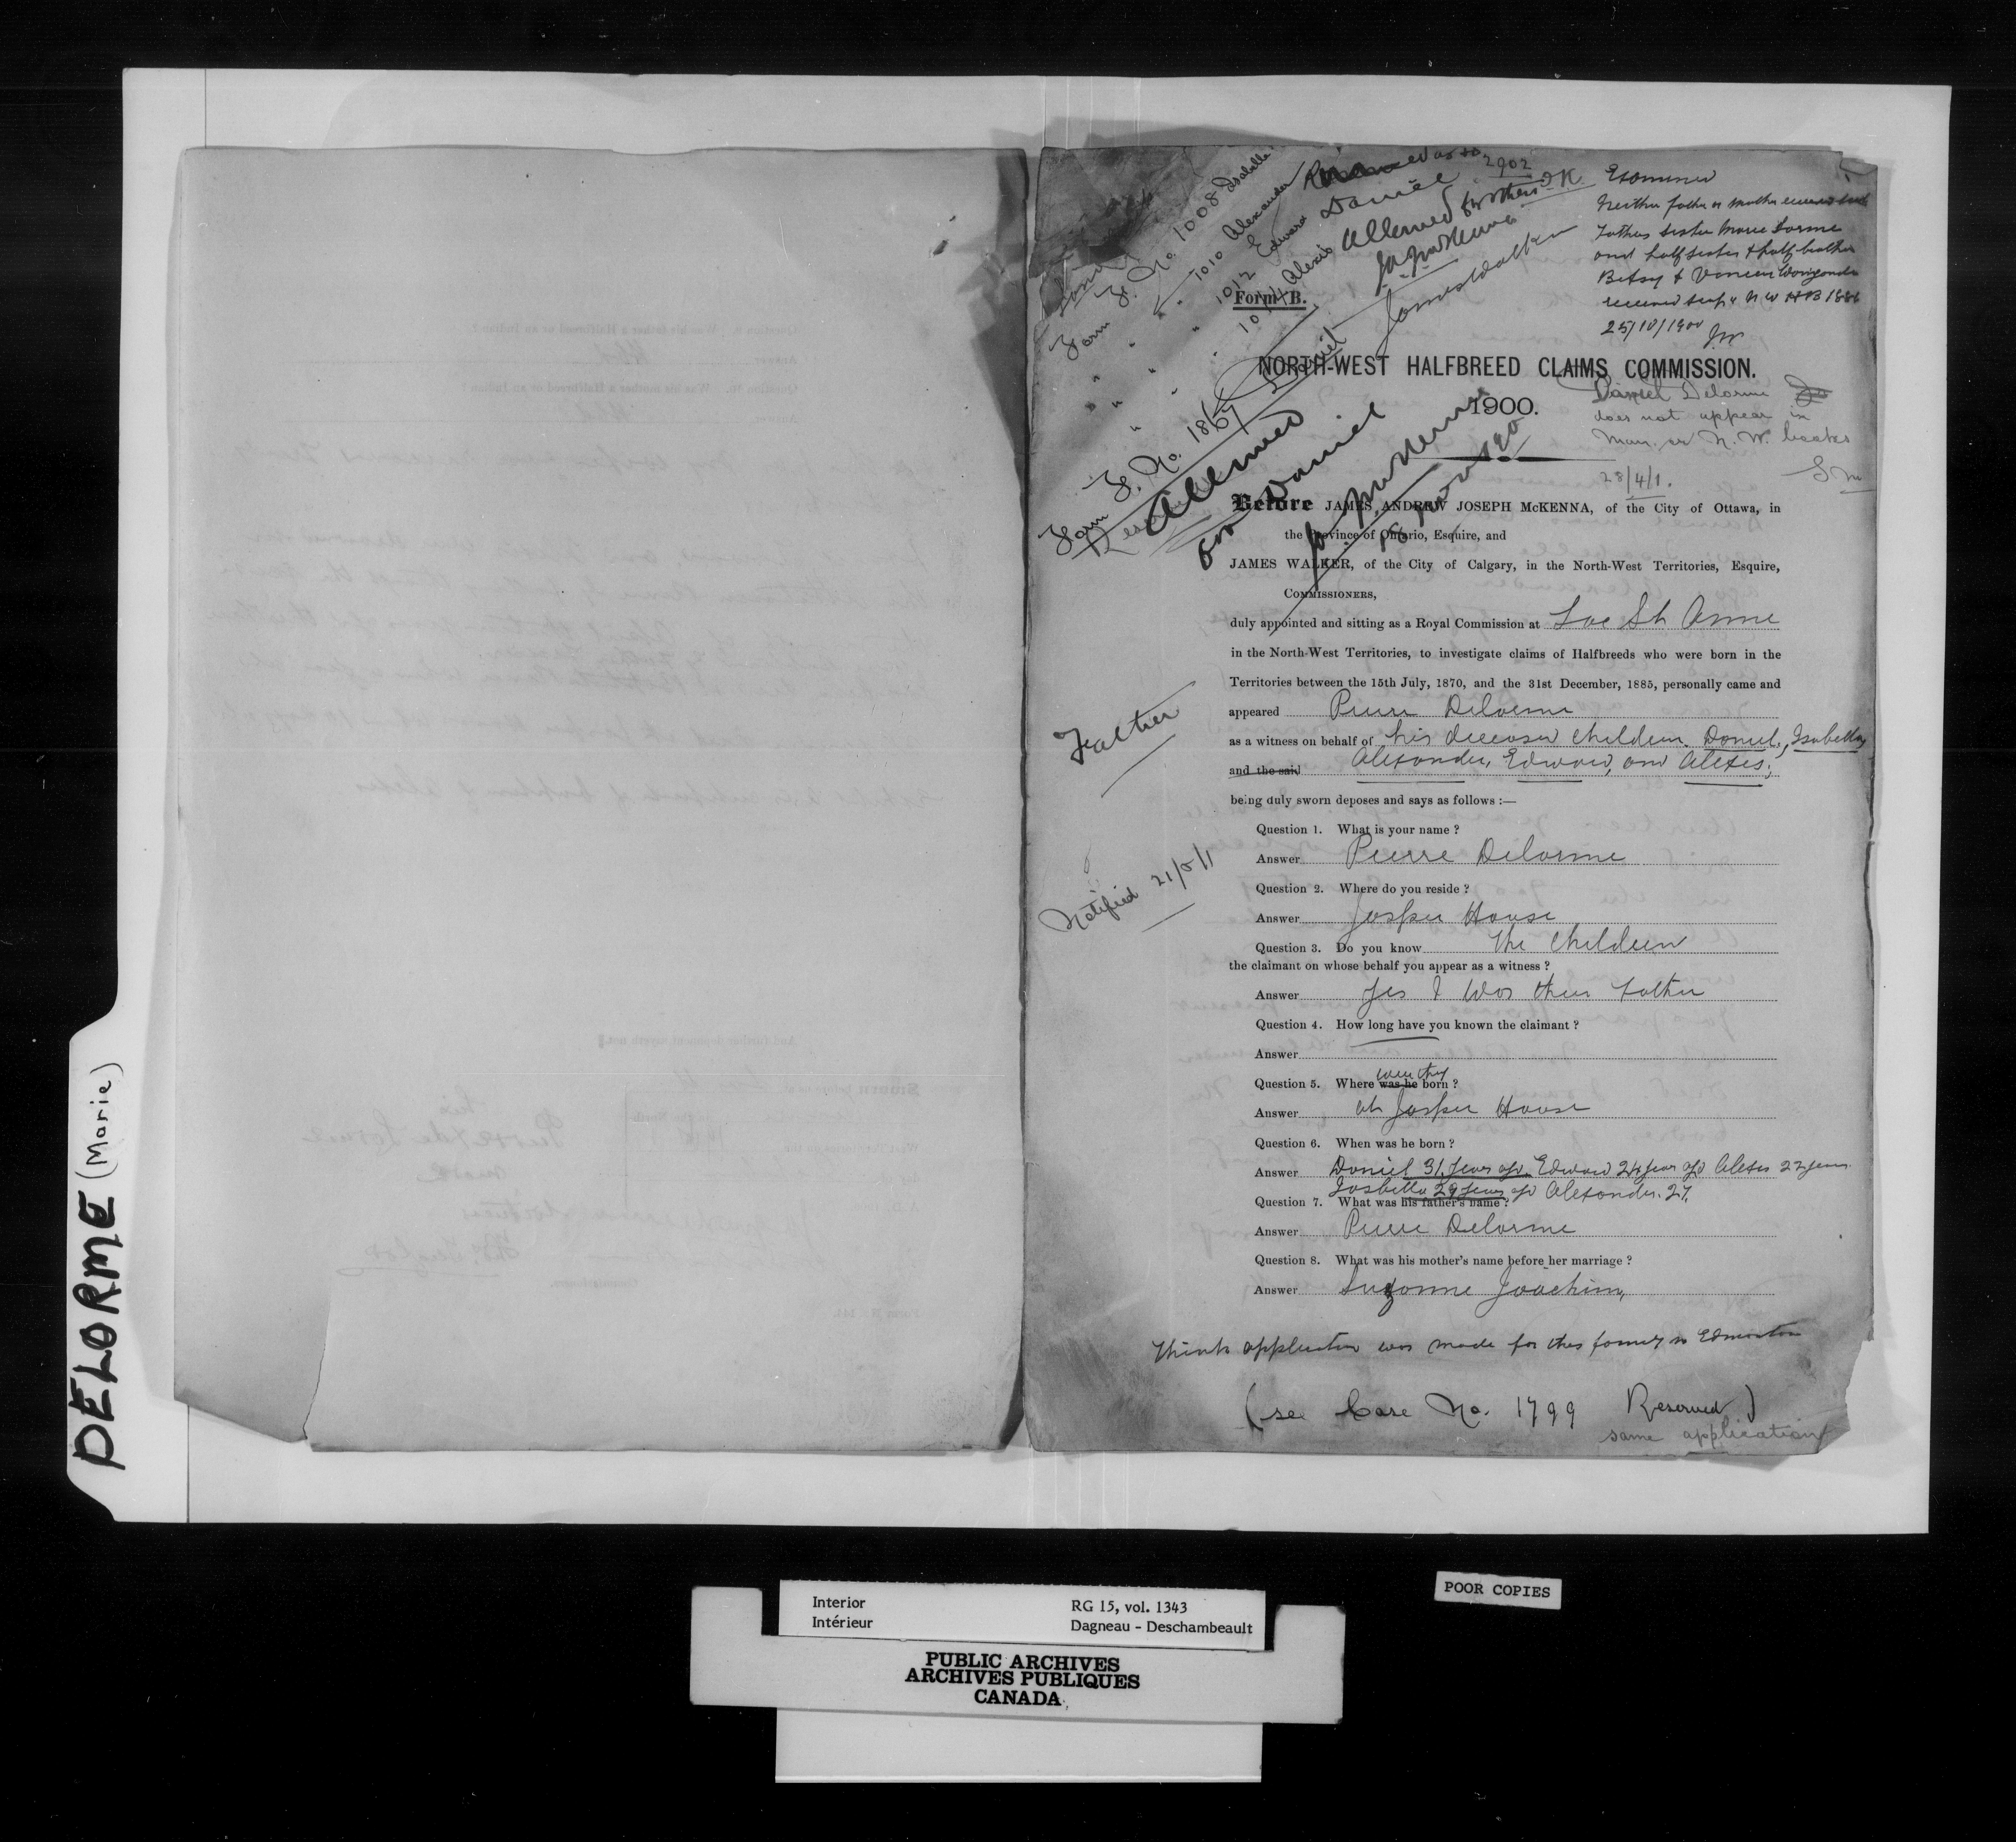 DELORME (Marie)
Form F. No. 1008 Isabella
" " 1010 Alexander
" " 1012 Edward
" " 1014 Alexis
Reserved as to
Daniel
Allowed for others
2902
OK
JAJ McKenna
James Walker
Examined
Neither father or mother received scrip
Fathers sister Marie Lorme
and half sister & half brother
Betsy & Vincent
received scrip N W HB 1886
25/10/1900
JW
Form B.
Form F. No. 1867 Daniel
NORTH-WEST HALFBREED CLAIMS COMMISSION.
1900.
Daniel Delorme
does not appear in
Man. or N. W. books
28/4/1.
Allowed
for Daniel
JAJ McKenna
Before JAMES ANDREW JOSEPH McKENNA, of the City of Ottawa, in
the Province of Ontario, Esquire, and
JAMES WALKER, of the City of Calgary, in the North-West Territories, Esquire,
COMMISSIONERS,
duly appointed and sitting as a Royal Commission at Lac St Anne
in the North-West Territories, to investigate claims of Halfbreeds who were born in the
Territories between the 15th July, 1870, and the 31st December, 1885, personally came and
appeared Pierre Delorme
Father
as a witness on behalf of his deceased children Daniel, Isabella,
and the said Alexander, Edward, and Alexis;
being duly sworn deposes and says as follows :—
Question 1. What is your name ?
Answer Pierre Delorme
Notified 21/5/1
Question 2. Where do you reside ?
Answer Jasper House
Question 3. Do you know the children
the claimant on whose behalf you appear as a witness ?
Answer Yes I was their father
Question 4. How long have you known the claimant ?
Answer
Question 5. Where was he were they born ?
Answer at Jasper House
Question 6. When was he born ?
Answer Daniel 31 years ago Edward 24 years ago Alexis 22 years
Isabella 29 years ago Alexander 27.
Question 7. What was his father's name ?
Answer Pierre Delorme
Question 8. What was his mother's name before her marriage ?
Answer Suzanne Joachim,
Think application was made for this family in Edmonton
(see Case No. 1799 Reserved)
same application
POOR COPIES
Interior RG 15, vol. 1343
Intérieur Dagneau - Deschambeault
PUBLIC ARCHIVES
ARCHIVES PUBLIQUES
CANADA